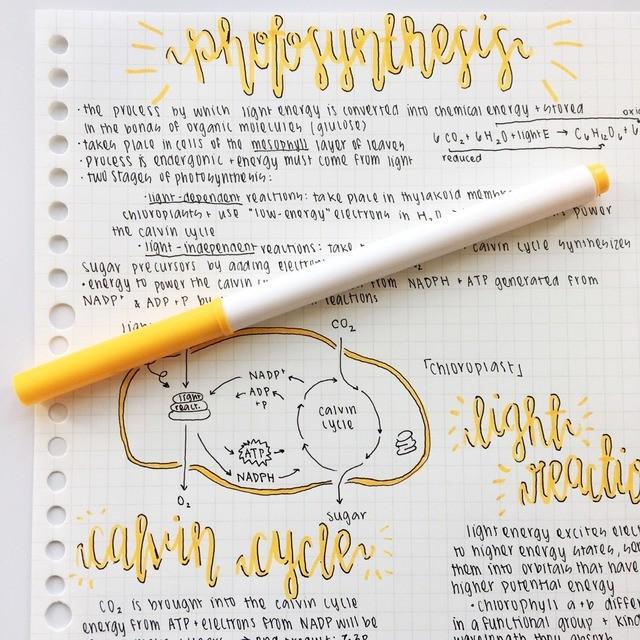 photosynthesis
• the process by which light energy is converted into chemical energy + stored
in the bonds of organic molecules (glucose)
• takes place in cells of the mesophyll layer of leaves
• process is endergonic + energy must come from light
6 CO₂ + 6 H₂O + light E → C₆H₁₂O₆ + 6
reduced
• two stages of photosynthesis:
• light-dependent reactions: take place in thylakoid
chloroplasts + use "low-energy" electrons in H₂O power
the calvin cycle
• light-independent reactions: take calvin cycle synthesizes
sugar precursors by adding
• energy to power the calvin from NADPH + ATP generated from
NADP⁺ & ADP + P by reactions
CO₂
「chloroplast」
light
react.
NADP⁺
ADP
+P
calvin
cycle
ATP
NADPH
O₂
sugar
light
calvin cycle
CO₂ is brought into the calvin cycle
energy from ATP + electrons from NADP will be
light energy excites
to higher energy states,
them into orbitals that have
higher potential energy
• chlorophyll a + b
in a functional group +